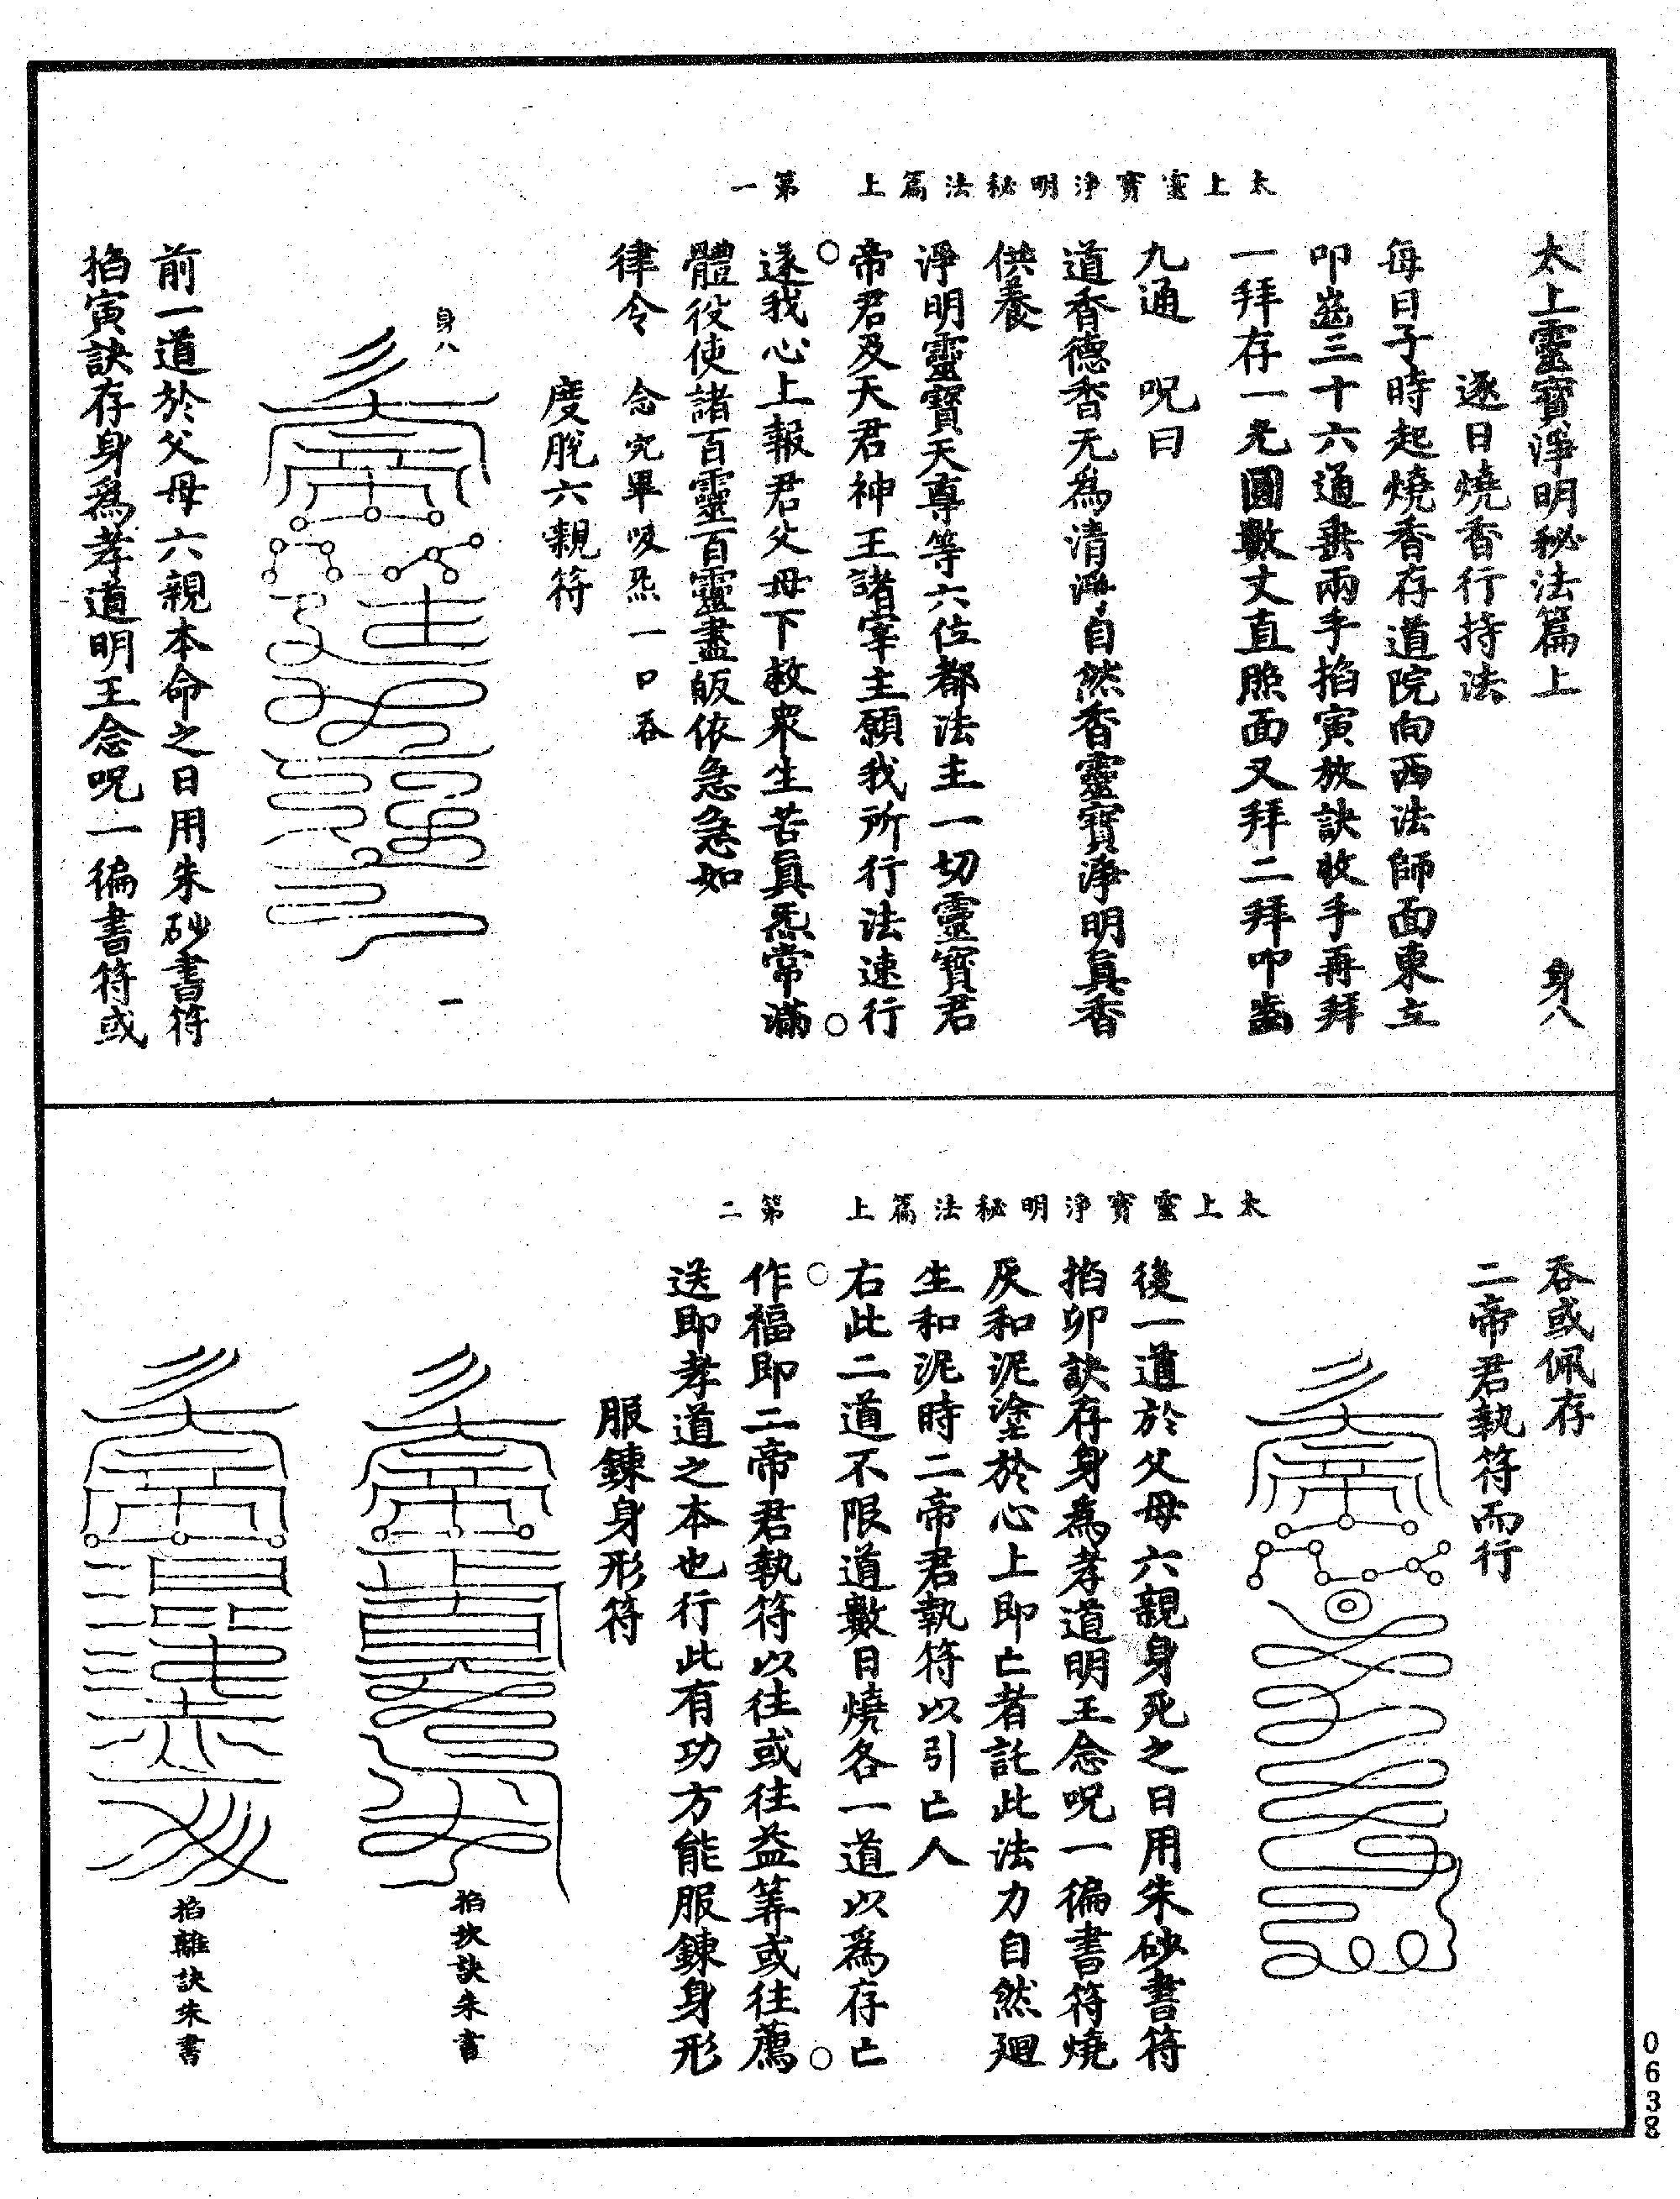 太上靈寶淨明秘法篇上　第一
太上靈寶淨明秘法篇上　身八
逐日燒香行持法
每日子時起燒香存道院向西法師面東立
叩齒三十六通垂兩手掐寅放訣收手再拜
一拜存一光圓數丈直照面又拜二拜叩齒
九通　呪曰
道香德香无為清淨自然香靈寶淨明真香
供養
淨明靈寶天尊等六位都法主一切靈寶君
帝君及天君神王諸宰主願我所行法速行
遂我心上報君父母下救衆生苦眞炁常滿
體役使諸百靈百靈盡皈依急急如
律令　念呪畢吸炁一口吞
度脫六親符
身八
一
前一道於父母六親本命之日用朱砂書符
掐寅訣存身爲孝道明王念呪一徧書符或
太上靈寶淨明秘法篇上　第二
吞或佩存
二帝君執符而行
後一道於父母六親身死之日用朱砂書符
掐卯訣存身爲孝道明王念呪一徧書符燒
灰和泥塗於心上即亡者託此法力自然廻
生和泥時二帝君執符以引亡人
右此二道不限道數日燒各一道以爲存亡
作福即二帝君執符以往或往益筭或往薦
送即孝道之本也行此有功方能服鍊身形
服鍊身形符
掐坎訣朱書
掐離訣朱書
0638